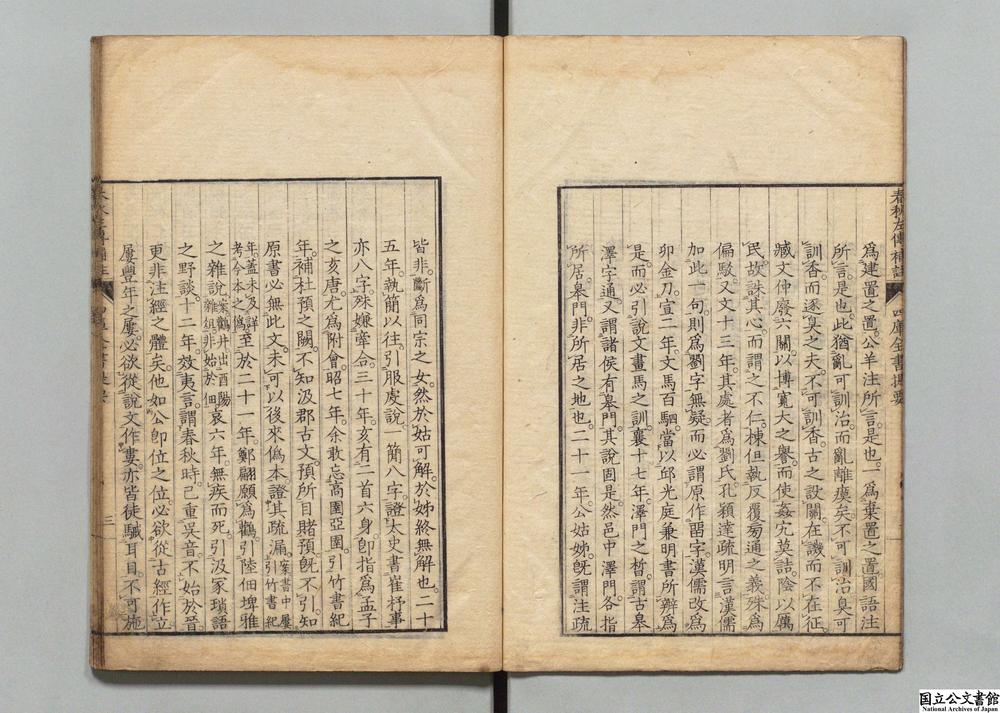 春秋左傳補註 四庫全書提要
爲建置之置。公羊注所言。是也。爲棄置之置。國語注
所言。是也。此猶亂可訓治。而亂離瘼矣不可訓治。臭可
訓香。而逐臭之夫。不可訓香。古之設關在譏而不在征。
臧文仲廢六關。以博寬大之譽。而使姦宄莫詰。陰以厲
民。故誅其心。而謂之不仁。棟但執反覆旁通之義。殊爲
偏駮。又文十三年。其處者爲劉氏。孔穎達疏明言漢儒
加此一句。則爲劉字無疑。而必謂原作畱字。漢儒改爲
卯金刀。宣二年。文馬百駟。當以邱光庭兼明書所辨爲
是。而必引說文畫馬之訓。襄十七年。澤門之晳。謂古臯
澤字通。又謂諸侯有臯門。其說固是。然邑中澤門。各指
所居。臯門。非所居之地也。二十一年。公姑姊。旣謂注疏
皆非。斷爲同宗之女。然於姑可解。於姊終無解也。二十
五年。執簡以往。引服虔說。一簡八字。證太史書崔杼事
亦八字。殊嫌牽合。三十年。亥有二首六身。卽指爲孟子
之亥唐。尤爲附會。昭七年。余敢忘高圉亞圉。引竹書紀
年。補杜預之闕。不知汲郡古文。預所目睹。預旣不引。知
原書必無此文。未可以後來僞本證其疏漏。案書中屢引竹書紀
年。蓋未及詳考今本之僞。至於二十一年。鄭翩願爲鸛。引陸佃埤雅
之雜說。案鸛井出酉陽雜俎。非始於佃。哀六年。無疾而死。引汲冢瑣語
之野談。十二年。效夷言。謂春秋時。已重吳音。不始於晉。
更非注經之體矣。他如公卽位之位。必欲從古經作立。
屢豐年之屢。必欲從說文作婁。亦皆徒駴耳目。不可施
三
国立公文書館
National Archives of Japan